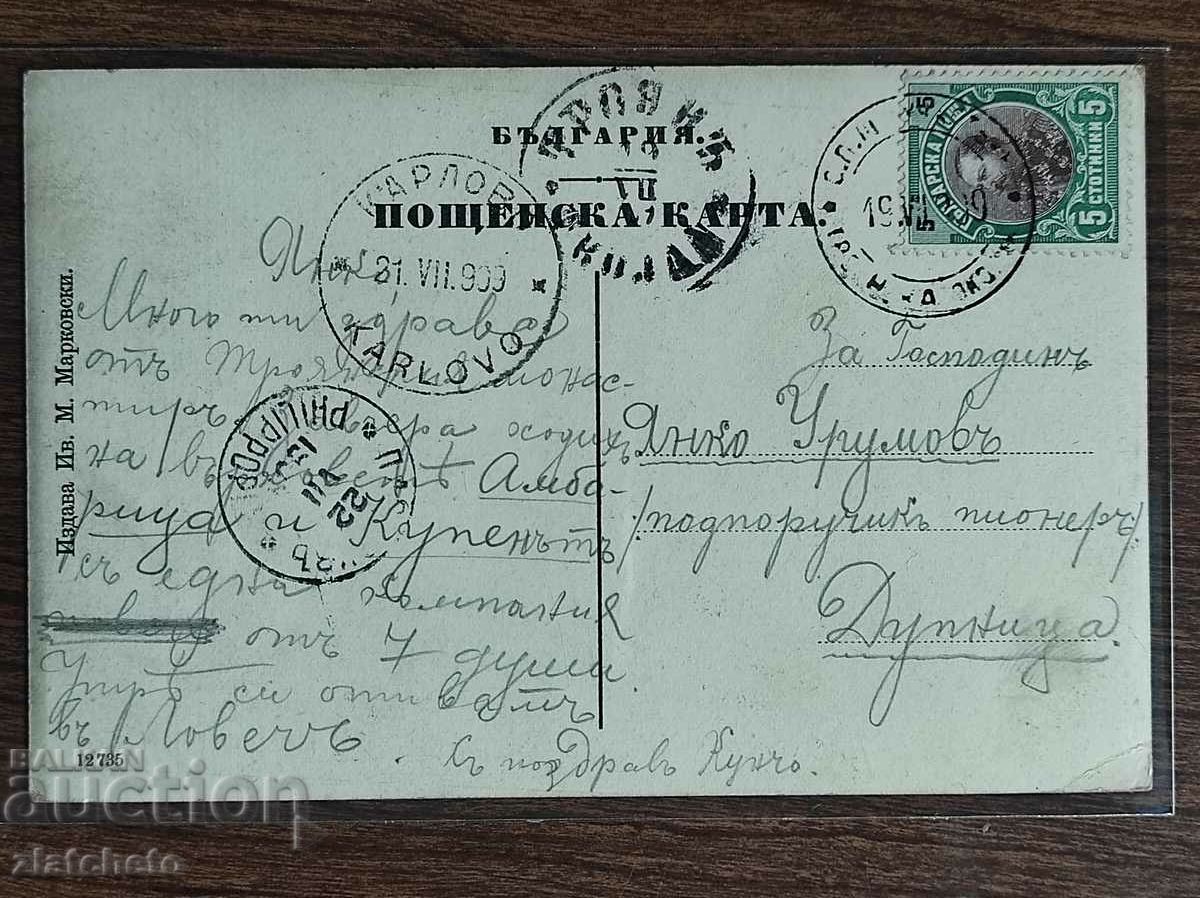 БЪЛГАРИЯ.
ПОЩЕНСКА КАРТА.
Издава Ив. М. Марковски.
КАРЛОВО
21. VII. 909
KARLOVO
ТРОЯНЪ
VII
TROIAN
С.П.М
19 VII
БЪЛГАРСКА ПОЩА
5 СТОТИНКИ 5
PHILIPPOP
22 VII
Янко,
Много ти здраве
отъ Троянския монас-
тиръ. Вчера ходихъ
на върховетѣ Амба-
рица и Купенътъ
съ една компания
отъ 7 души
Утрѣ си отивамъ
въ Ловечъ.
Съ поздравъ Кунчо.
За Господинъ
Янко Урумовъ
/подпоручикъ пионеръ/
Дупница.
12735
BALKAN
auction
zlatcheto